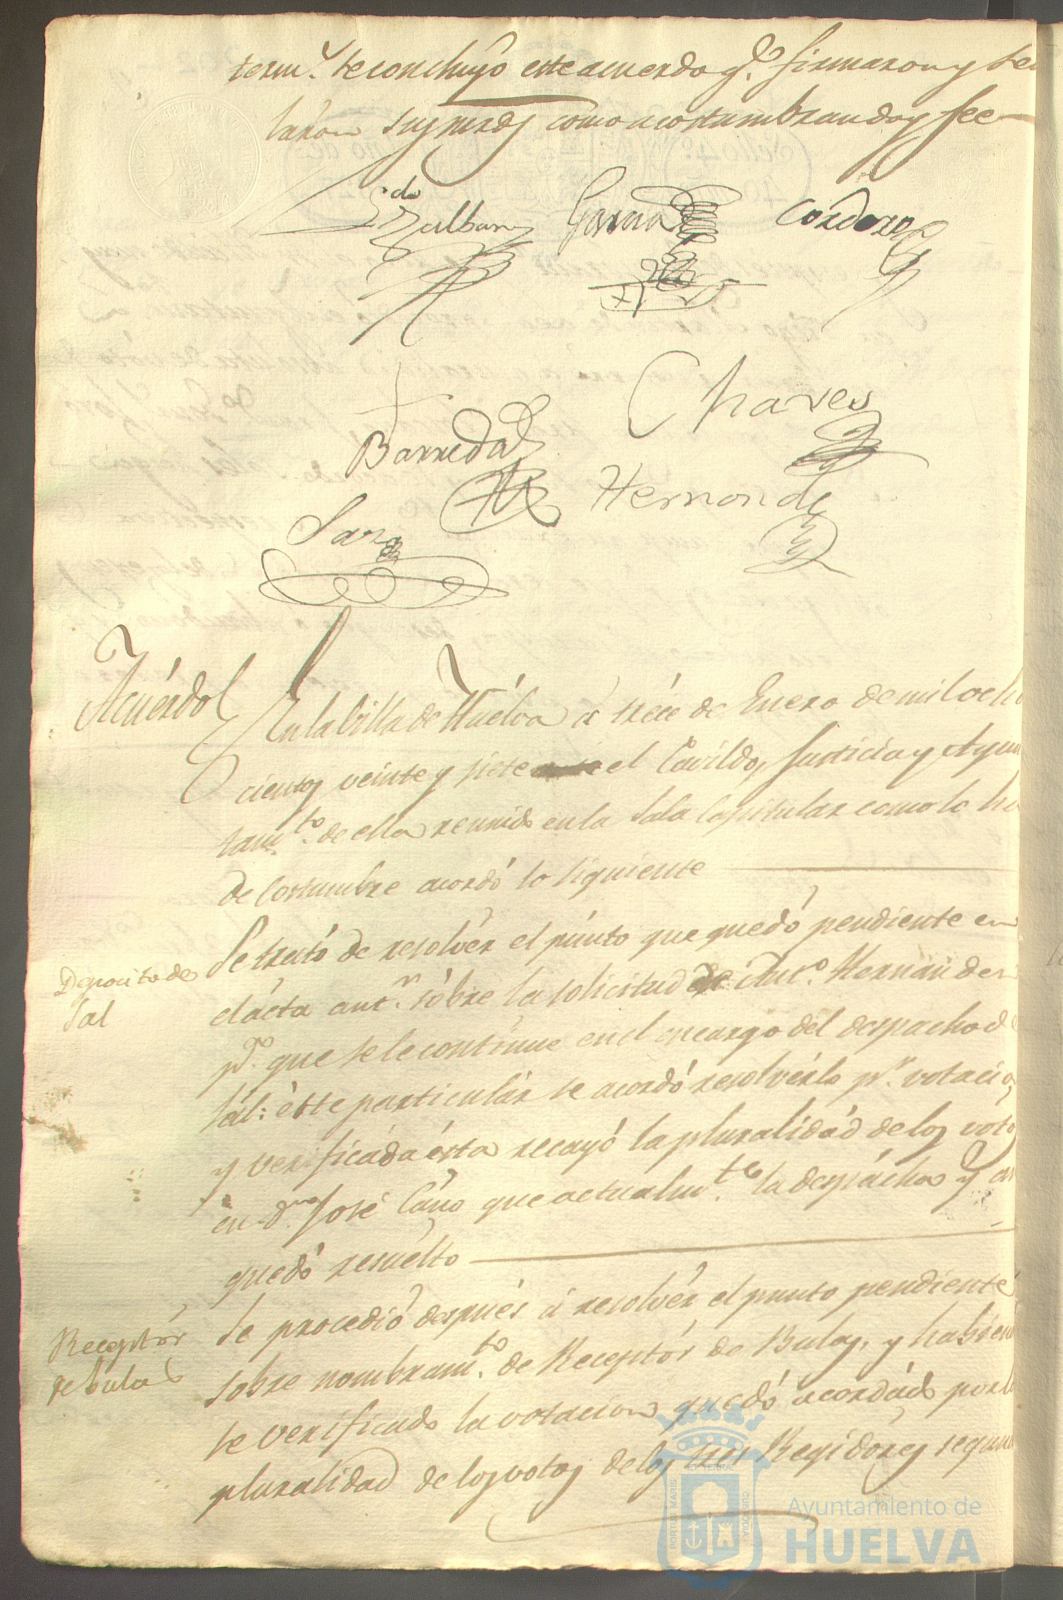 term.º se concluyó este acuerdo q.e firmaron y se
laron sus mrds como acostumbran doy fee
Lizdo
Zalbany Garcia Cordero
Chaves
Barreda
Hernandz
Sanz
Acuerdo
En la Villa de Huelva à tréce de Enero de mil ocho
cientos veinte y siete el Cavildo, Justicia y Ayun
tam.to de ella reunido en la Sala Capitular como lo há
de costumbre acordó lo siguiente
Deposito de
Sal
Se trató de resolvér el púnto que quedó pendiente en
el acta ant.r sóbre la solicitud de Ant.o Hernánder
p.a que se le continue en el encargo del despacho de
sál: éste particulár se acordó resolvérlo p.r votació
y verificada ésta recayó la pluralidád de los voto
en d.n José Cano que actualm.te la despácha y asi
quedó resuélto
Receptór
de bulas
Se procedió despues à resolvér el punto pendiente
sobre nombram.to de Receptór de Bulas, y habien
se verificado la votacion quedó acordádo por la
pluralidad de los votos de los tres Regidores segun
Ayuntamiento de
HUELVA